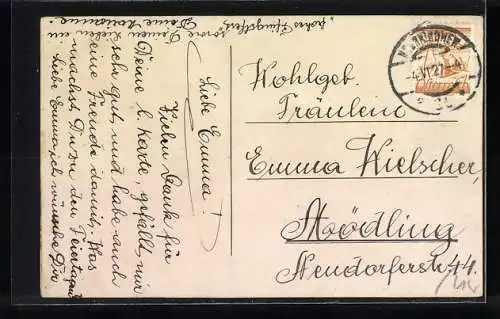 Liebe Emma!
Vielen Dank für
Deine l. Karte, gefällt mir
sehr gut, und habe auch
eine Freude damit. Was
machst Du zu den Feiertagen
Liebe Emma, ich wünsche Dir
sowie Deinen Lieben ein
„frohes Pfingstfest"
Deine
Wohlgeb.
Fräulein
Emma Kielscher,
Mödling
Neudorferstr. 44.
-4.VI.27